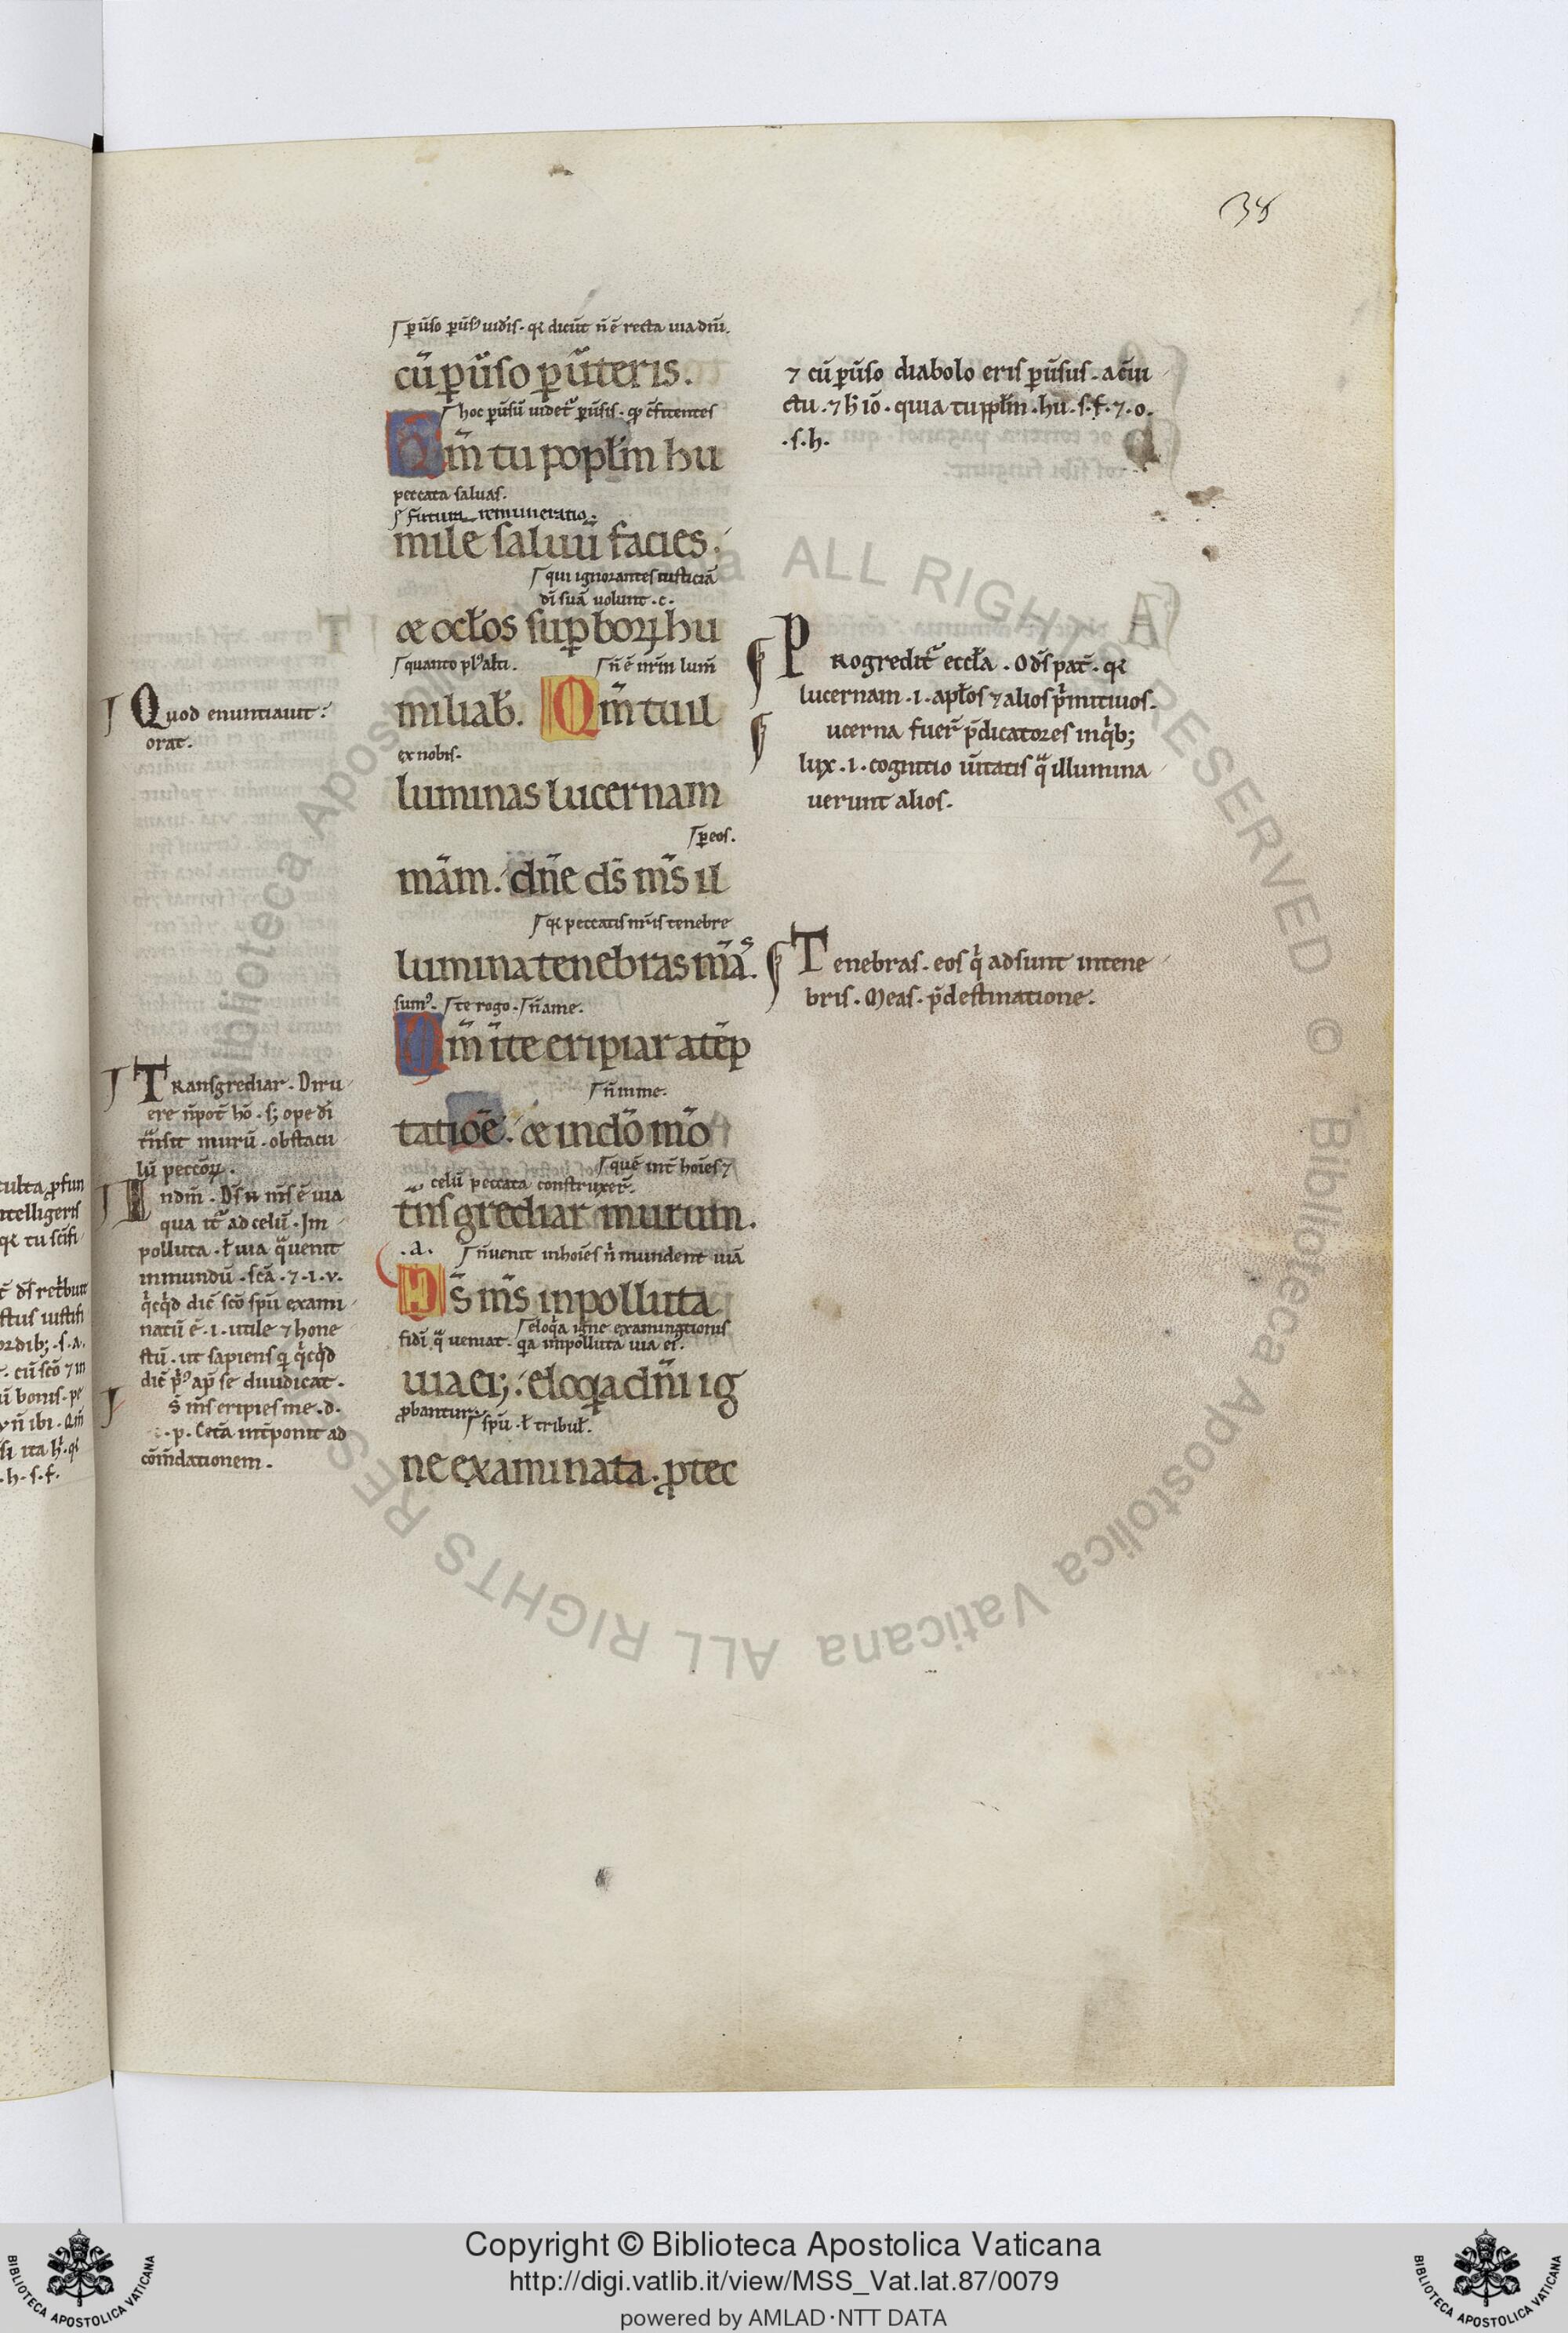 38
ſ ꝑũſo ꝑũſ᷒ uidis. qꝛ dicũt ñ ẽ recta uia dñi.
cũ ꝑũſo ꝑũteris.
ſ hoc ꝑũſũ uidet᷑ ꝑũſis. qd̃ c̃fitentes
Qm̃ tu popł̃m hu
peccata ſaluaſ.
ſ futura remuneratio.
mile ſaluũ facies.
ſ qui ignorantes iuſticiã
dĩ ſuã uolunt .c.
⁊ ocł̃os ſuꝑboꝝ hu
ſ quanto pl᷒ alti. ſ ñ ẽ nr̃m lum̃
miliab̃. Qm̃ tu il
ex nobiſ.
luminas lucernam
ſ ꝑ eoſ.
mãm. dñe ds̃ ms̃ il
ſ qꝛ peccatis nr̃is tenebre
lumina tenebras mãs.
ſum᷒. ſ te rogo. ſ ñ a me.
Qm̃ ĩ te eripiar a tẽp
ſ ñ in me.
tatiõe. ⁊ in dõ mõ
ſ quẽ int̃ hoĩes ⁊
celũ peccata conſtruxer̃.
tñſgrediar murum.
.a. ſ ñ uenit in hoĩes ñ mundent uiã
Ds̃ ms̃ inpolluta
ſ eloq̃a igne examinationis
fidĩ q̃ ueniat. qa impolluta uia ei᷒.
uia ei;. eloqa dñi ig
ꝓbantur. ſ ſpũ .ł tribuł.
ne examinata. ꝓtec
⁊ cũ ꝑũſo diabolo eris ꝑũſus. a c̃ui
ctu. ⁊ h̃ iõ. quia tu ppł̃m .hu.ſ.f.⁊.o.
.ſ.h.
Progredit᷑ eccł̃a. O dſ̃ pat̃. qꝛ
lucernam .i. apł̃os ⁊ alios p̃mitiuos.
ucerna fuer̃ p̃dicatores in qĩb;
lux .i. cognitio ũitatis q̃ illumina
uerunt alios.
Tenebras. eos qĩ adſunt in tene
bris. Meas. p̃deſtinatione.
Quod enuntiauit:
orat.
Tranſgrediar. Diru
ere ñ pot̃ hõ .ſ; ope dĩ
t̃nſit murũ. obſtacu
lũ peccõꝝ.
In dm̃. Ds̃ ms̃ ẽ uia
qua it᷑ ad celũ. Im
polluta. ł uia q̃ uenit
in mundũ. ſcã .⁊.i.v.
qĩcqd̃ dic̃ ſcõ ſpũ exami
natũ ẽ .i. utile ⁊ hone
ſtũ. ut ſapienſ qĩ qĩcqd̃
dic̃ p᷒ ap̃ ſe diiudicat.
ſ̃ ms̃ eripies me .d.
.p. Cetã int̃ponit ad
cõm̃dationem.
ALL RIGHTS RESERVED © Biblioteca Apostolica Vaticana
Copyright © Biblioteca Apostolica Vaticana
http://digi.vatlib.it/view/MSS_Vat.lat.87/0079
powered by AMLAD·NTT DATA
BIBLIOTECA APOSTOLICA VATICANA
BIBLIOTECA APOSTOLICA VATICANA